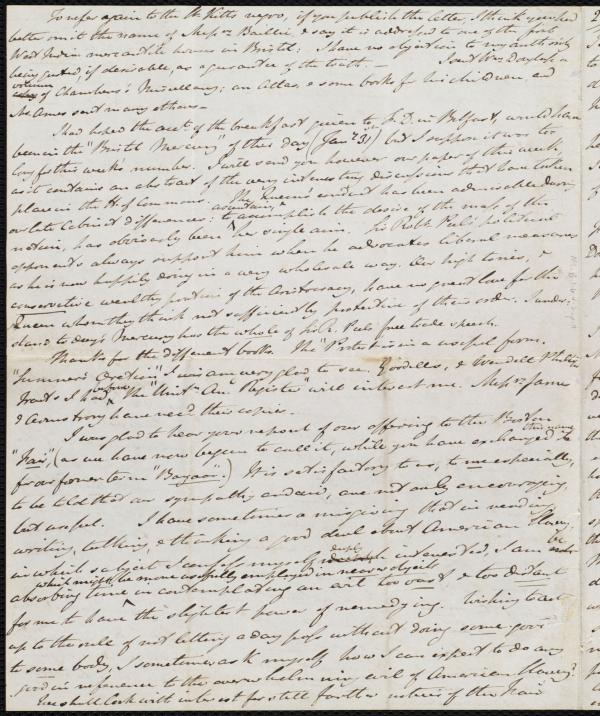 To refer again to the St. Kitts negro, if you publish the letter, I think you had
better omit the name of Messrs Baillie, & say it is addressed to one of the first
West India mercantile houses in Bristol: I have no objection to my authority
being quoted, if desirable, as a guarantee of the truth. — I sent Wm
volume of Chambers's Miscellany; an Atlas, & some books for his children, and
Mr Ames sent many others —
I had hoped the acct. of the breakfast given to F. D. in Belfast, would have
been in the "Bristol Mercury" of this day (Jany 31st) but I suppose it was too
long for this week's number. I will send you however our paper of this week,
as it contains an abstract of the very interesting discussions that have taken
place in the H. of Commons. The Queen's conduct has been admirable during
our late Cabinet differences: to ascertain & accomplish the desire of the mass of the
nation, has obviously been her single aim. Sir Robt. Peel's political
opponents always support him when he advocates liberal measures
as he is now happily doing in a very wholesale way. Our high tories, &
conservative wealthy portion of the Aristocracy, have no great love for the
Queen whom they think not sufficiently protective of their order. I under-
stand to day's Mercury has the whole of Sir R. Peel's free trade speech.
Thanks for the different books. The is in a useful form.
"Sumner's Oration" I was very glad to see. Goodell's, & Wendell Phillips'
tracts I had before. The "Unitn An: Register" will interest me. Messrs James
& Armstrong have recd. their copies.
I was glad to hear your report of our offering to the Boston
"Fair", (as we have now begun to call it, while you have exchanged this name
for our former term "Bazaar":) It is satisfactory to us, to me especially,
to be told that our sympathy and aid, are not only encouraging,
but useful. I have sometimes a misgiving that in reading,
writing, talking, & thinking a good deal about American Slavery,
in which subject I confess myself deeply interested, I am
absorbing time which might be more usefully employed in nearer objects in contemplating an evil too vast & too distant
for me to have the slightest power of remedying. Wishing to act
up to the rule of not letting a day pass without doing some good
to some body, I sometimes ask myself how I can expect to do any
good in reference to the overwhelming evil of American Slavery?
We shall look with interest for still farther notice of the Fair